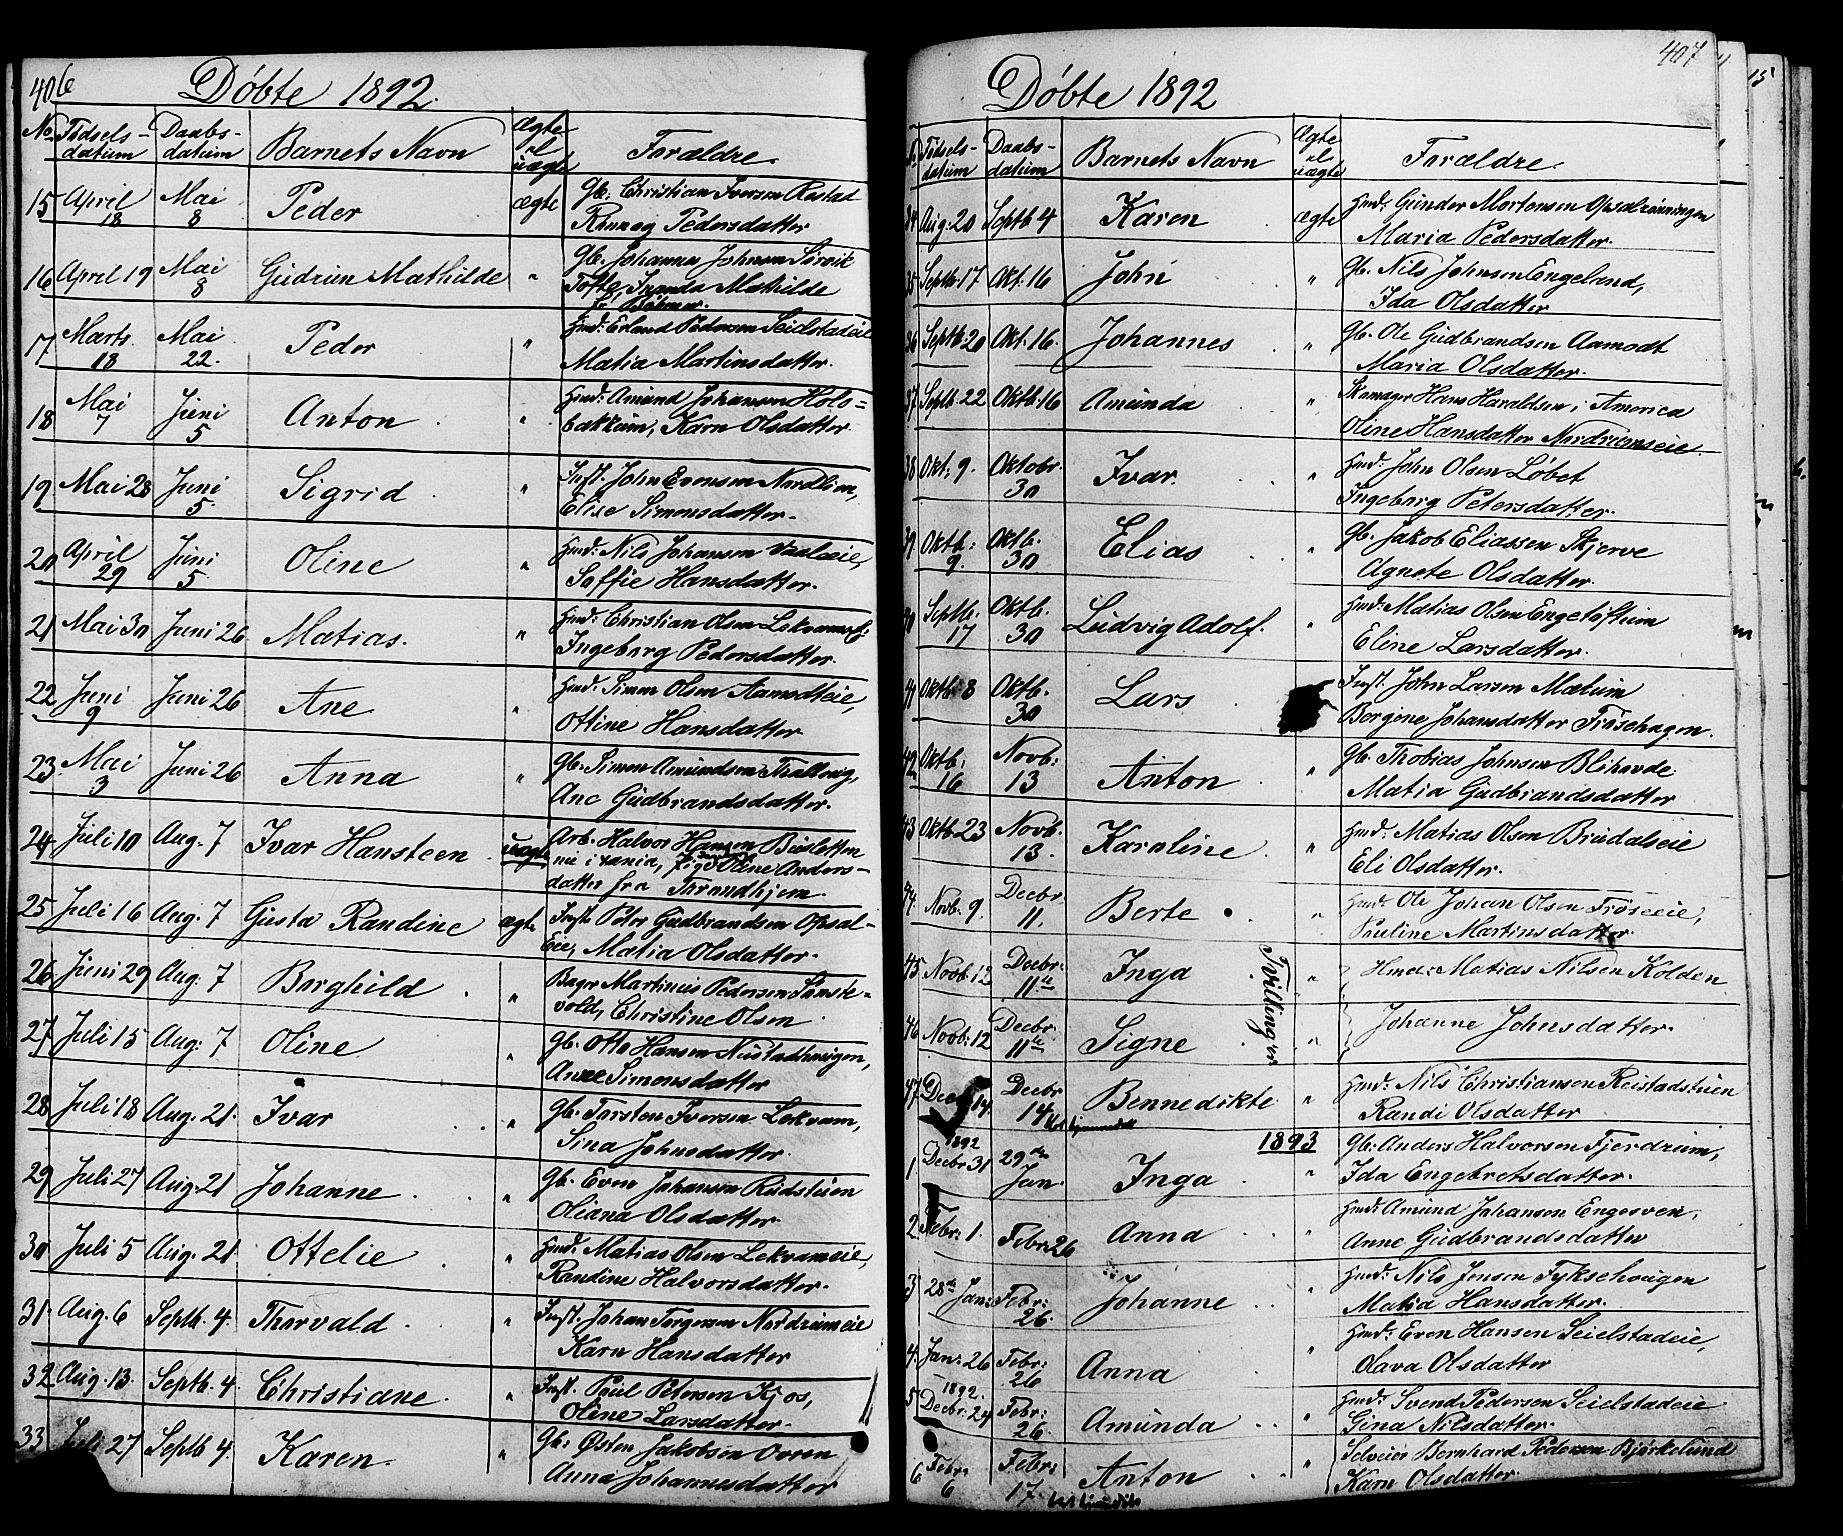 406
Døbte 1892.
No Fødsels-datum Daabs-datum Barnets Navn Ægte el uægte Forældre.
15 April 18 Mai 8 Peder ægte Gb. Christian Iversen Rastad
Rønnog Pedersdatter
16 April 19 Mai 8 Gudrun Mathilde " Gb. Johannes Johnsen Sørvik
Tofte, Mathilde
17 Marts 18 Mai 22. Peder " Hmd. Erland Pedersen Seielstadeie
Matia Martinsdatter.
18 Mai 7 Juni 5 Anton " Hmd: Amund Johansen Holo=
bakken, Karn Olsdatter.
19 Mai 28 Juni 5. Sigrid " Inst. John Evensen Nordlien,
Elise Simensdatter.
20 April 29 Juni 5. Oline " Hmd: Nils Johansen Vaaleeie,
Soffie Hansdatter.
21 Mai 30 Juni 26 Matias. " Hmd: Christian Olsen
Ingeborg Pedersdatter.
22 Juni 9 Juni 26 Ane " Hmd. Simen Olsen Aamodteie,
Ottine Hansdatter
23 Mai 3 Juni 26 Anna " Gb. Simen Amundsen
Ane Gudbrandsdatter.
24 Juli 10 Aug. 7 Ivar Hansteen uægte Arb. Halvor Hansen
datter fra Trondhjem
25 Juli 16 Aug. 7 Gusta Randine ægte Inst. Peter Gudbrandsen Opsal-
Eie, Matia Olsdatter.
26 Juni 29 Aug. 7 Borghild " Bager Martinus Pedersen
vold, Christine Olsen
27 Juli 15 Aug: 7 Oline " Gb. Otto Hansen Nustadhaugen,
Anne Simensdatter
28 Juli 18 Aug. 21. Ivar " Gb. Torsten Iversen Lekvam,
Sina Johnsdatter.
29 Juli 27 Aug. 21 Johanne " Gb. Even Johansen Rudstuen
Oliana Olsdatter.
30 Juli 5 Aug. 21 Ottelie " Hmd: Matias Olsen Lekvameie,
Randine Halvorsdatter.
31. Aug. 6 Septb. 4. Thorvald " Inst. Johan Torgersen Nordrumeie
Karn Hansdatter
32 Aug. 13. Septb. 4. Christiane " Inst. Paul Petersen Kjos,
Oline Larsdatter.
33 Juli 27 Septb 4. Karen " Gb. Østen Jakobsen Ovren
Anna Johannesdatter
407
Døbte 1892
No Fødsels-datum Daabs-datum Barnets Navn Ægte el uægte Forældre.
34 Aug. 20 Septb 4 Karen ægte Hmd: Gunder Mortensen Opsalrønningen
Maria Pedersdatter.
35 Septb 17 Okt. 16 John " Gb. Nils Johnsen Engeland,
Ida Olsdatter.
36 Septb 20 Okt. 16. Johannes " Gb. Ole Gudbrandsen Aamodt
Maria Olsdatter.
37 Septb. 22 Oktb. 16 Amunda " Skomager Hans Haraldsen i America
Oline Hansdatter Nordrumseie.
38 Okt. 9. Oktobr. 30 Ivar. " Hmd: John Olsen Løbet
Ingeborg Petersdatter.
39 Oktb: 9. Oktb. 30 Elias " Gb. Jakob Eliassen Skjerve
Agnete Olsdatter.
40 Septb. 17 Oktb. 30 Ludvig Adolf. " Hmd: Matias Olsen Engeløftum
Eline Larsdatter.
41 Oktb 8 Oktb. 30 Lars Inst. John Larsen Mælum
Bergene Johansdatter Frøsehagen.
42 Oktb: 16 Novb: 13 Anton " Gb. Thobias Johnsen Blihovde
Matia Gudbrandsdatter
43 Oktb. 23 Novb. 13. Karoline " Hmd: Matias Olsen Brudaleie
Eli Olsdatter.
44 Novb. 9. Decbr. 11. Berte " Hmd: Ole Johan Olsen Frøseeie,
Pauline Martinsdatter.
45 Novb. 12 Decbr: 11te Inga " Hmd: Matias Nilsen Kolden
Tvillinger
46 Novb: 12 Decbr. 11te Signe " Johanne Johnsdatter.
47 Decb 14. Decbr 14 Hjemmedøbt Bennedikte " Hmd: Nils Christiansen Reistadstuen
Randi Olsdatter
1893
1 1892 Decbr 31 29de Jan. Inga " Gb: Anders Halvorsen Fjerdrum,
Ida Engebretsdatter.
2 Febr: 1. Febr. 26 Anna Hmd: Amund Johansen Engesven,
Anne Gudbrandsdatter
3 28de Jan: Febr: 26. Johanne Hmd: Nils Jensen Tykschougen
Matia Hansdatter.
4. Jan: 26 Febr: 26 Anna " Hmd: Even Hansen Seielstadeie,
Olava Olsdatter
5 1892. Decbr. 24 Febr: 26. Amunda " Hmd: Svend Pedersen Seielstadeie
Gina Nilsdatter.
6 Febr: 6 Febr: 17. Anton " Selveier Bernhard Pedersen Bjørkelund
Karn Olsdatter.